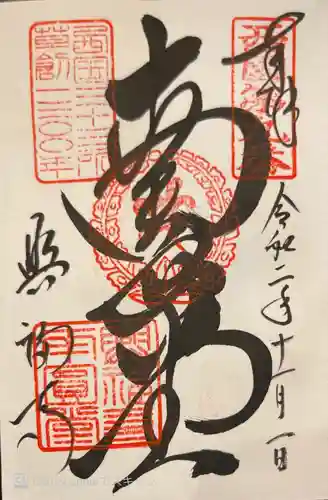 奉拝
令和二年十一月一日
南圓堂
興福寺
西国三十三所
草創一三〇〇年
興福寺
南圓堂